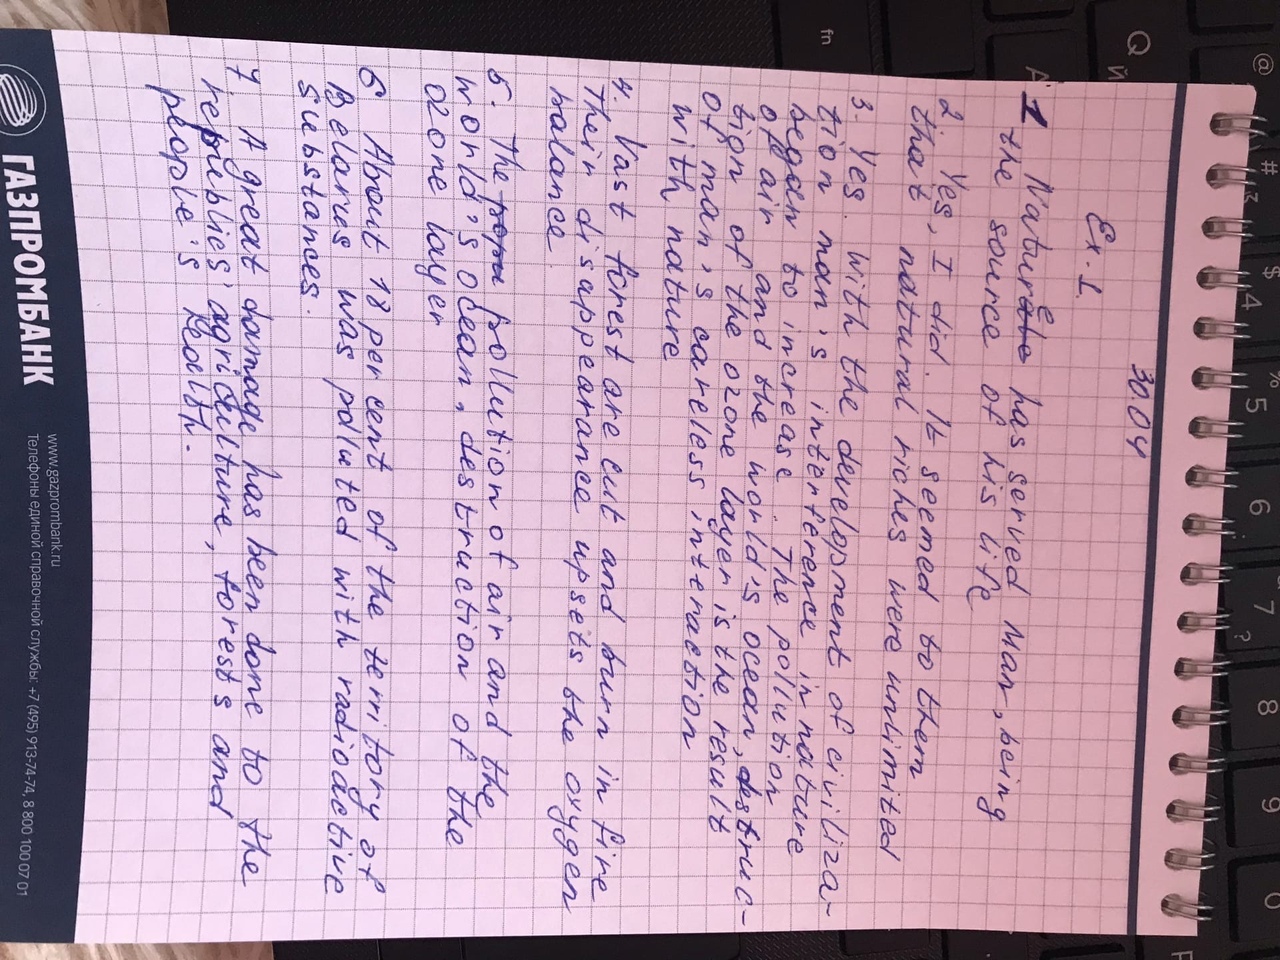 30.04
Ex. 1.
1 Nature has served Man, being
the source of his life
2 Yes, I did. It seemed to them
that natural riches were unlimited
3. Yes. With the development of civiliza-
tion man's interference in nature
began to increase. The pollution
of air and the world's ocean, destruc-
tion of the ozone layer is the result
of man's careless interaction
with nature
4. Vast forest are cut and burn in fire
Their disappearance upsets the oxygen
balance.
5. The pollution of air and the
world's ocean, destruction of the
ozone layer
6. About 18 per cent of the territory of
Belarus was polluted with radioactive
substances.
7. A great damage has been done to the
republics' agriculture, forests and
people's health.
ГАЗПРОМБАНК
www.gazprombank.ru
Телефоны единой справочной службы: +7 (495) 913-74-74, 8 800 100 07 01
fn
Q Й
@
#
$ 4
% 5
6
7 ?
8
9
0